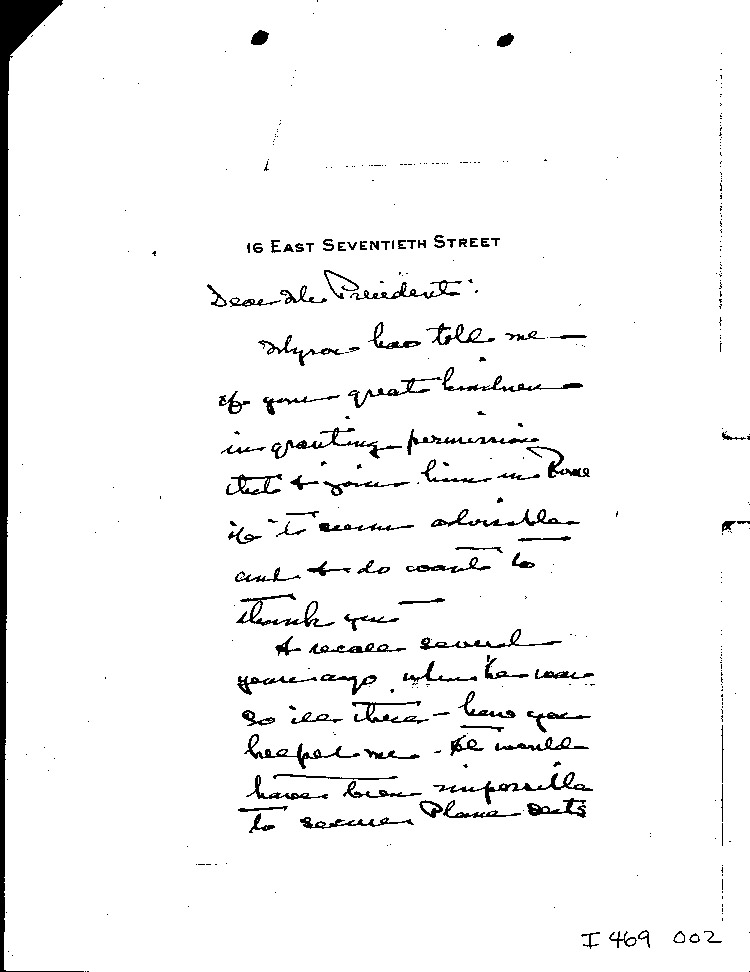 16 EAST SEVENTIETH STREET
Dear Mr. President:
Myron has told me
of your great kindness
in granting permission
that I join him in Rome
if it seems advisable
and I do want to
thank you
I recall several
years ago when he was
so ill there - how you
helped me - It would
have been impossible
to secure Plane seats
I 469 002